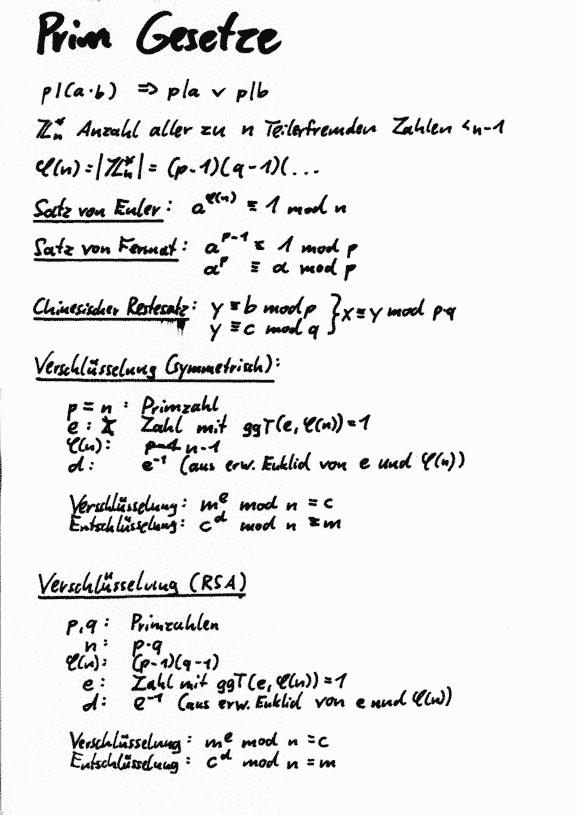 Prim Gesetze
p|(a·b) => p|a ∨ p|b
ℤn* Anzahl aller zu n Teilerfremden Zahlen <n-1
φ(n) = |ℤn*| = (p-1)(q-1)(...
Satz von Euler: a^φ(n) ≡ 1 mod n
Satz von Fermat: a^p-1 ≡ 1 mod p
a^p ≡ a mod p
Chinesischer Restesatz: y ≡ b mod p } x ≡ y mod p·q
y ≡ c mod q
Verschlüsselung (symmetrisch):
p = n : Primzahl
e : Zahl mit ggT(e, φ(n)) = 1
φ(n): n-1
d : e^-1 (aus erw. Euklid von e und φ(n))
Verschlüsselung: m^e mod n = c
Entschlüsselung: c^d mod n = m
Verschlüsselung (RSA)
p,q : Primzahlen
n : p·q
φ(n): (p-1)(q-1)
e : Zahl mit ggT(e, φ(n)) = 1
d : e^-1 (aus erw. Euklid von e und φ(n))
Verschlüsselung: m^e mod n = c
Entschlüsselung: c^d mod n = m